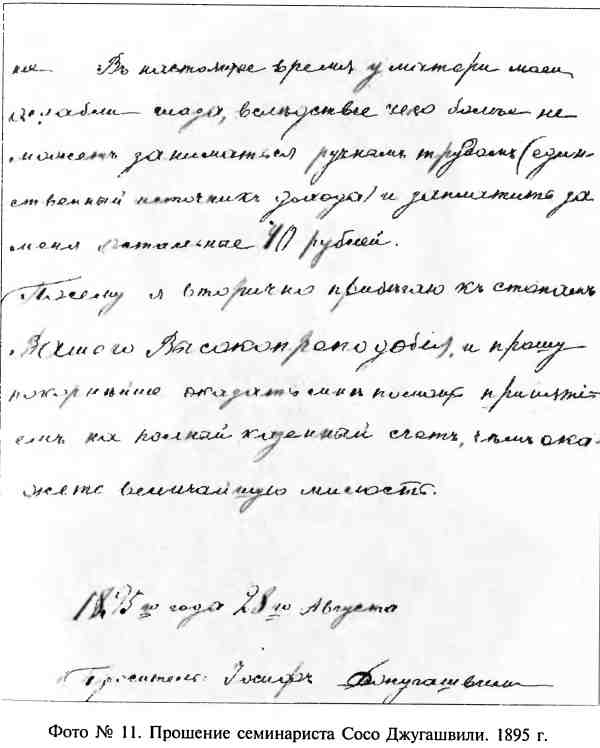 ния. Въ настоящее время у матери моей
ослабли глаза, вслѣдствіе чего болѣе не
можетъ заниматься ручнымъ трудомъ (един-
ственный источникъ дохода) и заплатить за
меня остальные 40 рублей.
Посему я вторично прибѣгаю къ стопамъ
Вашего Высокопреподобія, и прошу
покорнѣйше оказать мнѣ помощь принятi-
емъ на полный казенный счетъ, чѣмъ ока-
жете величайшую милость.
1895 го года 28 го Августа
Проситель: Іосифъ Джугашвили
Фото № 11. Прошение семинариста Сосо Джугашвили. 1895 г.